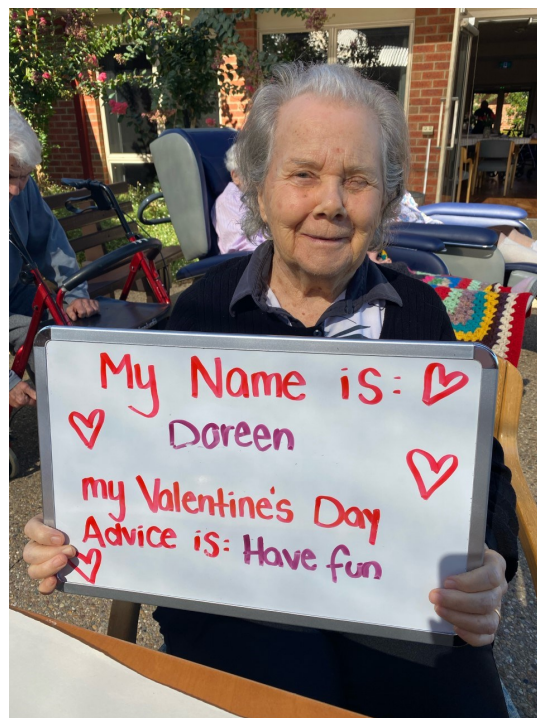 My Name is:
Doreen
my Valentine's Day
Advice is: Have fun